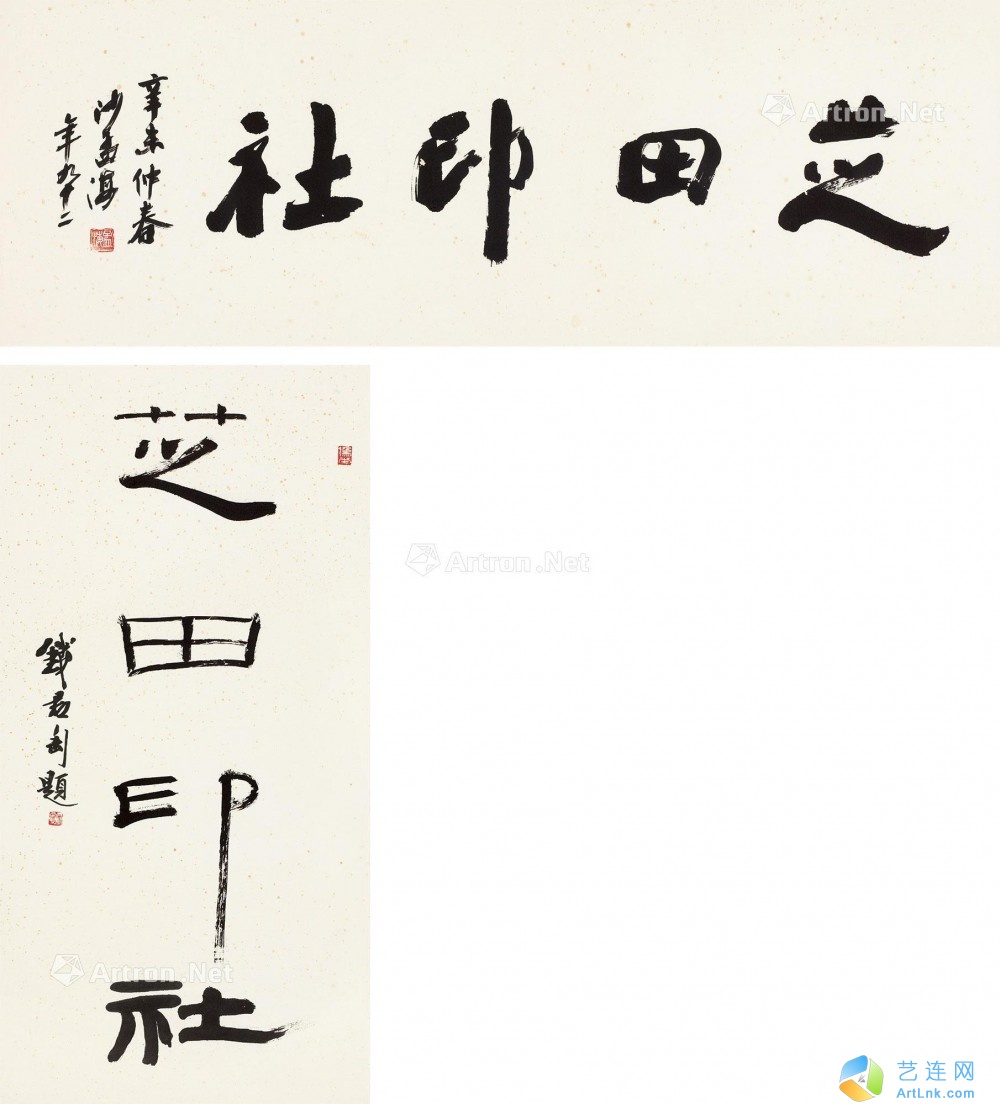 芝田印社
辛未仲春
沙孟海
年九十二
芝田印社
钱君匋题
Artron.Net
Artron.Net
Artron.Net
艺连网
ArtLnk.com